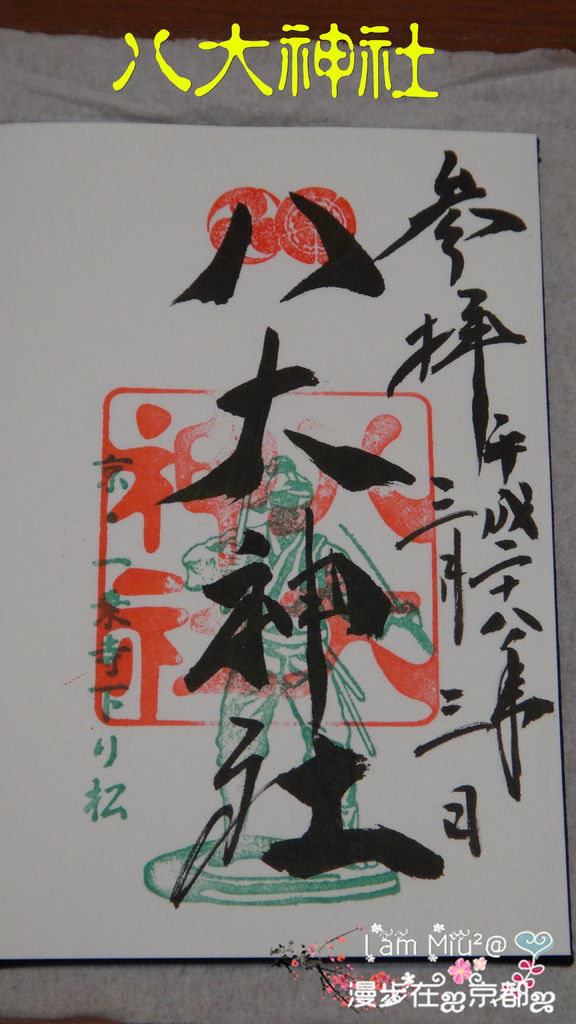 八大神社
参拝
平成二十八年
三月三日
八大神社
八大神社
京・一乗寺下り松
I am Miu²@
漫步在ஐ京都ஐ